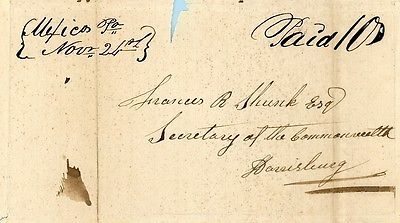 Mexico Pa
Novr 24th
Paid 10
Francis R Shunk Esq
Secretary of the Commonwealth
Harrisburg